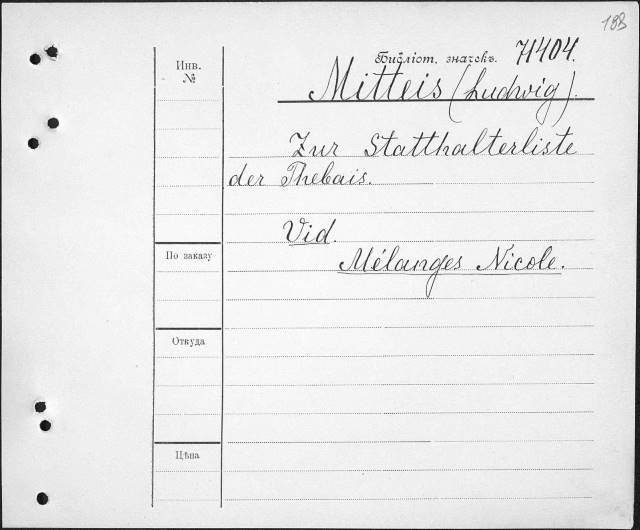 188
Инв.
№
Библіот. значекъ. 71404.
Mitteis (Ludwig).
Zur Statthalterliste
der Thebais.
Vid.
Mélanges Nicole.
По заказу
Откуда
Цѣна